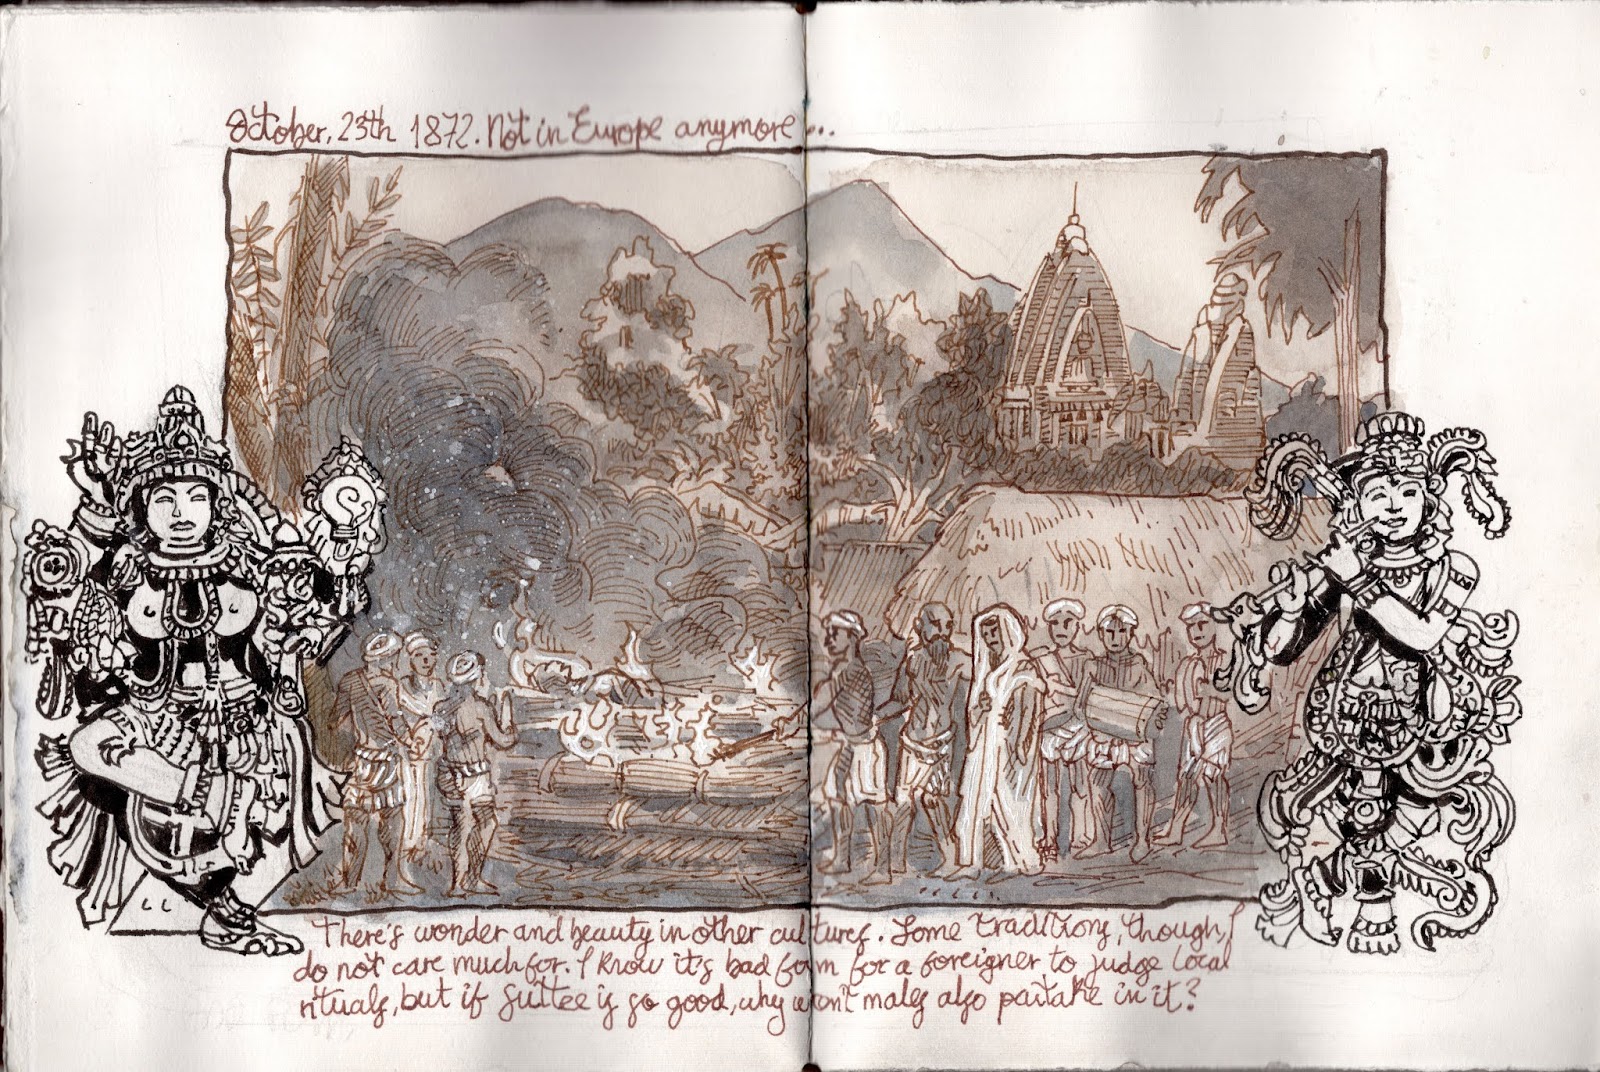 October, 23th 1872. Not in Europe anymore...
There's wonder and beauty in other cultures. Some traditions, though, I
do not care much for. I know it's bad form for a foreigner to judge local
rituals, but if Suttee is so good, why won't males also partake in it?